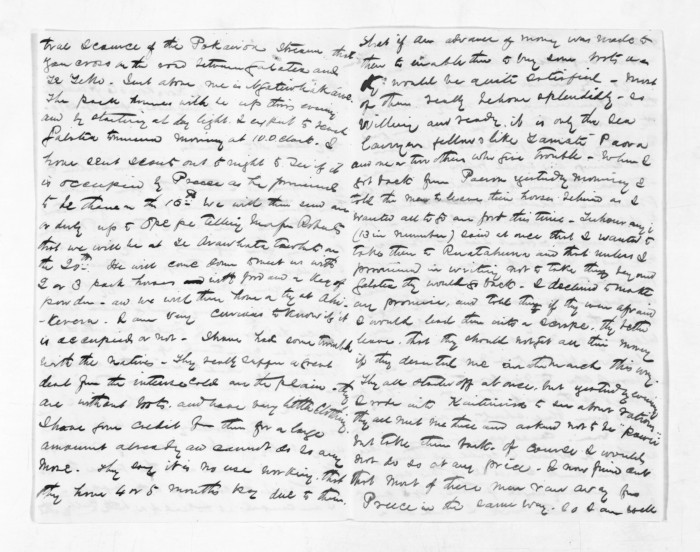 tral source of the Pokairoa Stream that
you cross on the road between Galatea and
Te Teko. Just above me is
The pack horses will be up this evening
and by starting at day light I expect to reach
Galatea tomorrow morning at 10 O'clock. I
have sent scouts out to night to see if it
is occupied by Preece as he promised
to be there on the 15th. We will then send an
orderly up to Opepe telling Major Roberts
that we will be at Te Arawhata
the 20th. He will come down to meet us with
2 or 3 pack horses with food and a keg of
powder - and we will then have a try at Ahi-
-kereru. I am very curious to know if it
is occupied or not. I have had some trouble
with the natives - They really suffer a great
deal from the intense cold on the plain - they
are without boots, and have very little clothing.
I have gone credit for them for a large
amount already and cannot do so any
more. They say it is no use working, that
they have 4 or 5 months pay due to them.
that if an advance of money was made to
them to enable them to buy some boots &c
they would be quite satisfied - Most
of them really behave splendidly - so
willing and ready, it is only the
lawyer fellows like Tamati Paora
and one or two others who give trouble - When I
got back from Paeroa yesterday morning I
told the men to leave their horses behind as I
wanted all to go on foot this time -
(13 in number) said at once that I wanted to
take them to Ruatahuna and that unless I
promised in writing not to take them beyond
Galatea they would go back - I declined to make
any promise, and told them if they were afraid
I would lead them into a scrape, they better
leave, that they should not get all their money
if they deserted me on the march this way.
They all started off at once, but yesterday evening
I rode into Kaiteriria to see about rations -
they all met me there and asked not to be
but take them back. Of course I would
not do so at any price - I now find out
that most of these men ran away from
Preece in the same way. So I am well